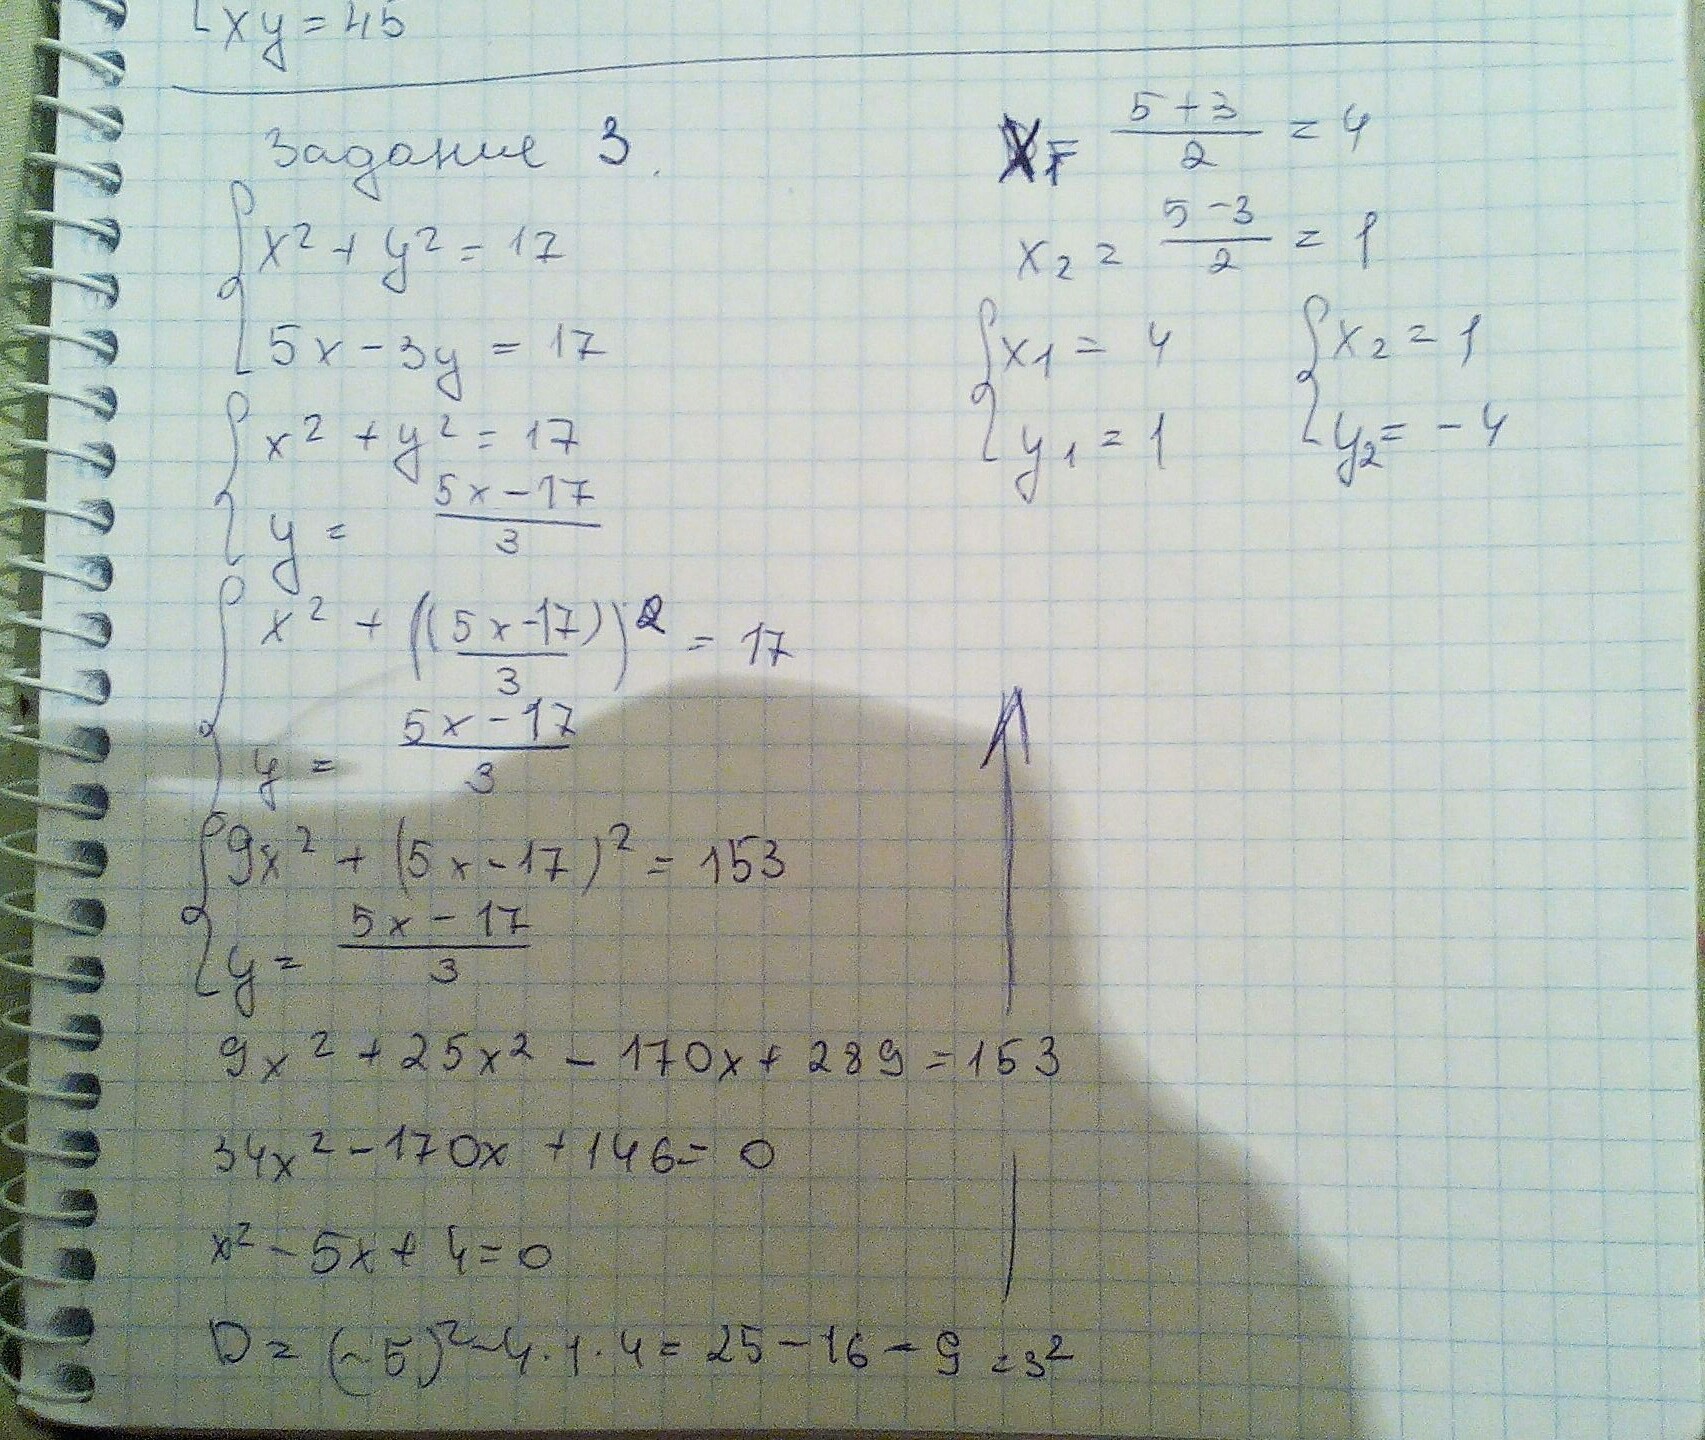 xy = 45
Задание 3.
x² + y² = 17
5x - 3y = 17
x² + y² = 17
y = (5x - 17)/3
x² + ((5x - 17)/3)² = 17
y = (5x - 17)/3
9x² + (5x - 17)² = 153
y = (5x - 17)/3
9x² + 25x² - 170x + 289 = 153
34x² - 170x + 146 = 0
x² - 5x + 4 = 0
D = (-5)² - 4·1·4 = 25 - 16 = 9 = 3²
x₁ = (5 + 3)/2 = 4
x₂ = (5 - 3)/2 = 1
x₁ = 4
y₁ = 1
x₂ = 1
y₂ = -4